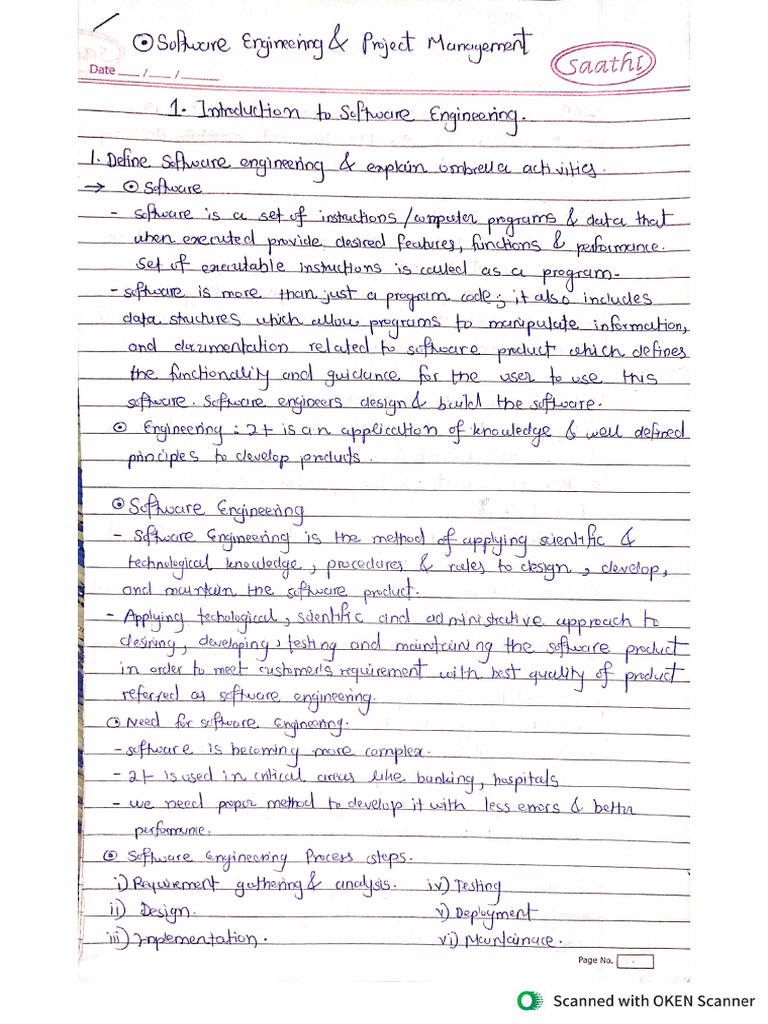 ⊙ Software Engineering & Project Management
Saathi
Date ___/___/_____
1. Introduction to Software Engineering.
1. Define Software engineering & explain umbrella activities.
→ ⊙ Software
- software is a set of instructions/computer programs & data that
when executed provide desired features, functions & performance.
set of executable instructions is called as a program.
- software is more than just a program code; it also includes
data structures which allow programs to manipulate information,
and documentation related to software product which defines
the functionality and guidance for the user to use this
software. Software engineers design & build the software.
⊙ Engineering : It is an application of knowledge & well defined
principles to develop products.
⊙ Software Engineering
- Software Engineering is the method of applying scientific &
technological knowledge, procedures & rules to design, develop,
and maintain the software product.
- Applying techological, scientific and administrative approach to
desiring, developing, testing and maintaining the software product
in order to meet customer's requirement with best quality of product
referred as software engineering.
⊙ Need for software Engineering.
- software is becoming more complex.
- It is used in critical areas like banking, hospitals
- we need proper method to develop it with less errors & better
performance.
⊙ Software Engineering Process steps.
i) Requirement gathering & analysis. iv) Testing
ii) Design. v) Deployment
iii) Implementation. vi) Maintainace.
Page No. .
Scanned with OKEN Scanner